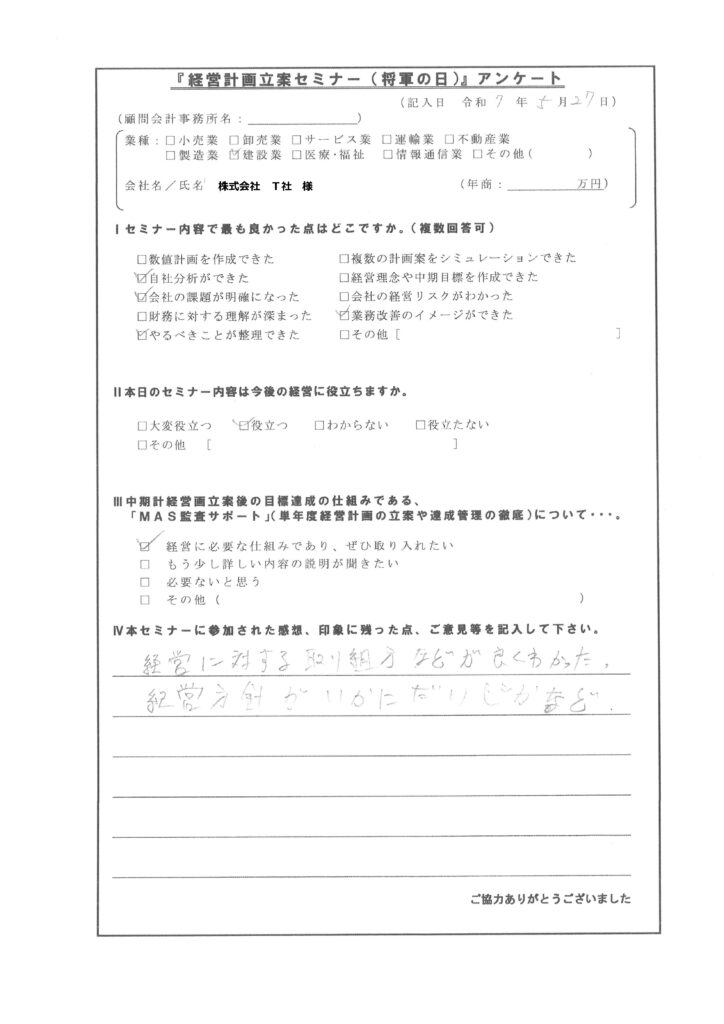 『経営計画立案セミナー（将軍の日）』アンケート
（記入日　令和 7 年 5 月 27 日）
（顧問会計事務所名：＿＿＿＿＿＿＿＿＿＿）
業種：□小売業　□卸売業　□サービス業　□運輸業　□不動産業
□製造業　☑建設業　□医療・福祉　□情報通信業　□その他（　　　　　）
会社名／氏名　株式会社　T社　様　（年商：＿＿＿＿＿＿万円）
Ⅰセミナー内容で最も良かった点はどこですか。（複数回答可）
□数値計画を作成できた　□複数の計画案をシミュレーションできた
☑自社分析ができた　□経営理念や中期目標を作成できた
☑会社の課題が明確になった　□会社の経営リスクがわかった
□財務に対する理解が深まった　☑業務改善のイメージができた
☑やるべきことが整理できた　□その他［　　　　　］
Ⅱ本日のセミナー内容は今後の経営に役立ちますか。
□大変役立つ　☑役立つ　□わからない　□役立たない
□その他　［　　　　　］
Ⅲ中期計経営画立案後の目標達成の仕組みである、
「ＭＡＳ監査サポート」（単年度経営計画の立案や達成管理の徹底）について・・・。
☑　経営に必要な仕組みであり、ぜひ取り入れたい
□　もう少し詳しい内容の説明が聞きたい
□　必要ないと思う
□　その他（　　　　　）
Ⅳ本セミナーに参加された感想、印象に残った点、ご意見等を記入して下さい。
経営に対する取り組方などが良くわかった。
経営方針がいかにだいじかなど.
ご協力ありがとうございました